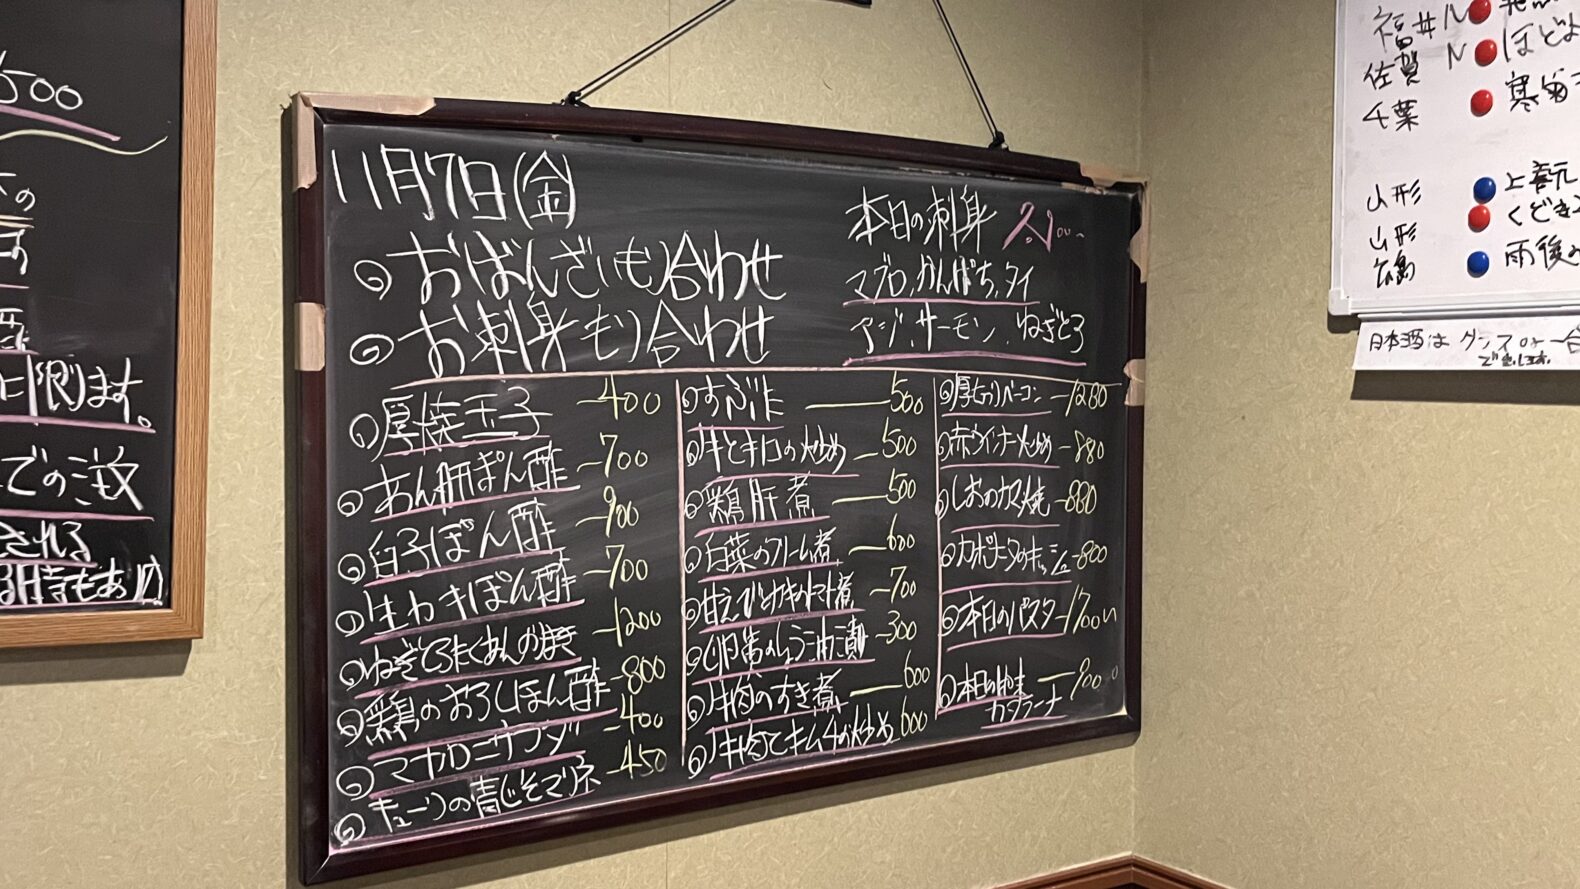 500
の
に限ります。
での注文
される
時もあり
11月7日(金)
おばんざいもり合わせ
お刺身もり合わせ
本日の刺身
マグロ、かんぱち、タイ
アジ、サーモン、ねぎとろ
厚焼玉子 400
あん肝ぽん酢 700
白子ぽん酢 900
生かきぽん酢 700
ねぎとろたくあんの 1200
鶏のおろしぽん酢 800
マカロニサラダ 400
キューリの青じそマリネ 450
500
の炒め 500
鶏肝煮 500
白菜のクリーム煮 600
甘えびとかきのトマト煮 700
の醤油漬 300
牛肉のすき煮 600
牛肉とキムチの炒め 600
厚切りベーコン 1280
赤ウインナー炒め 880
しおのカマ焼 880
のキッシュ 800
本日のパスタ 1700
本日の 900
カタラーナ
福井
佐賀
千葉
山形 上喜元
山形 くどき
広島 雨後の
日本酒は グラス or 一合
で出します。